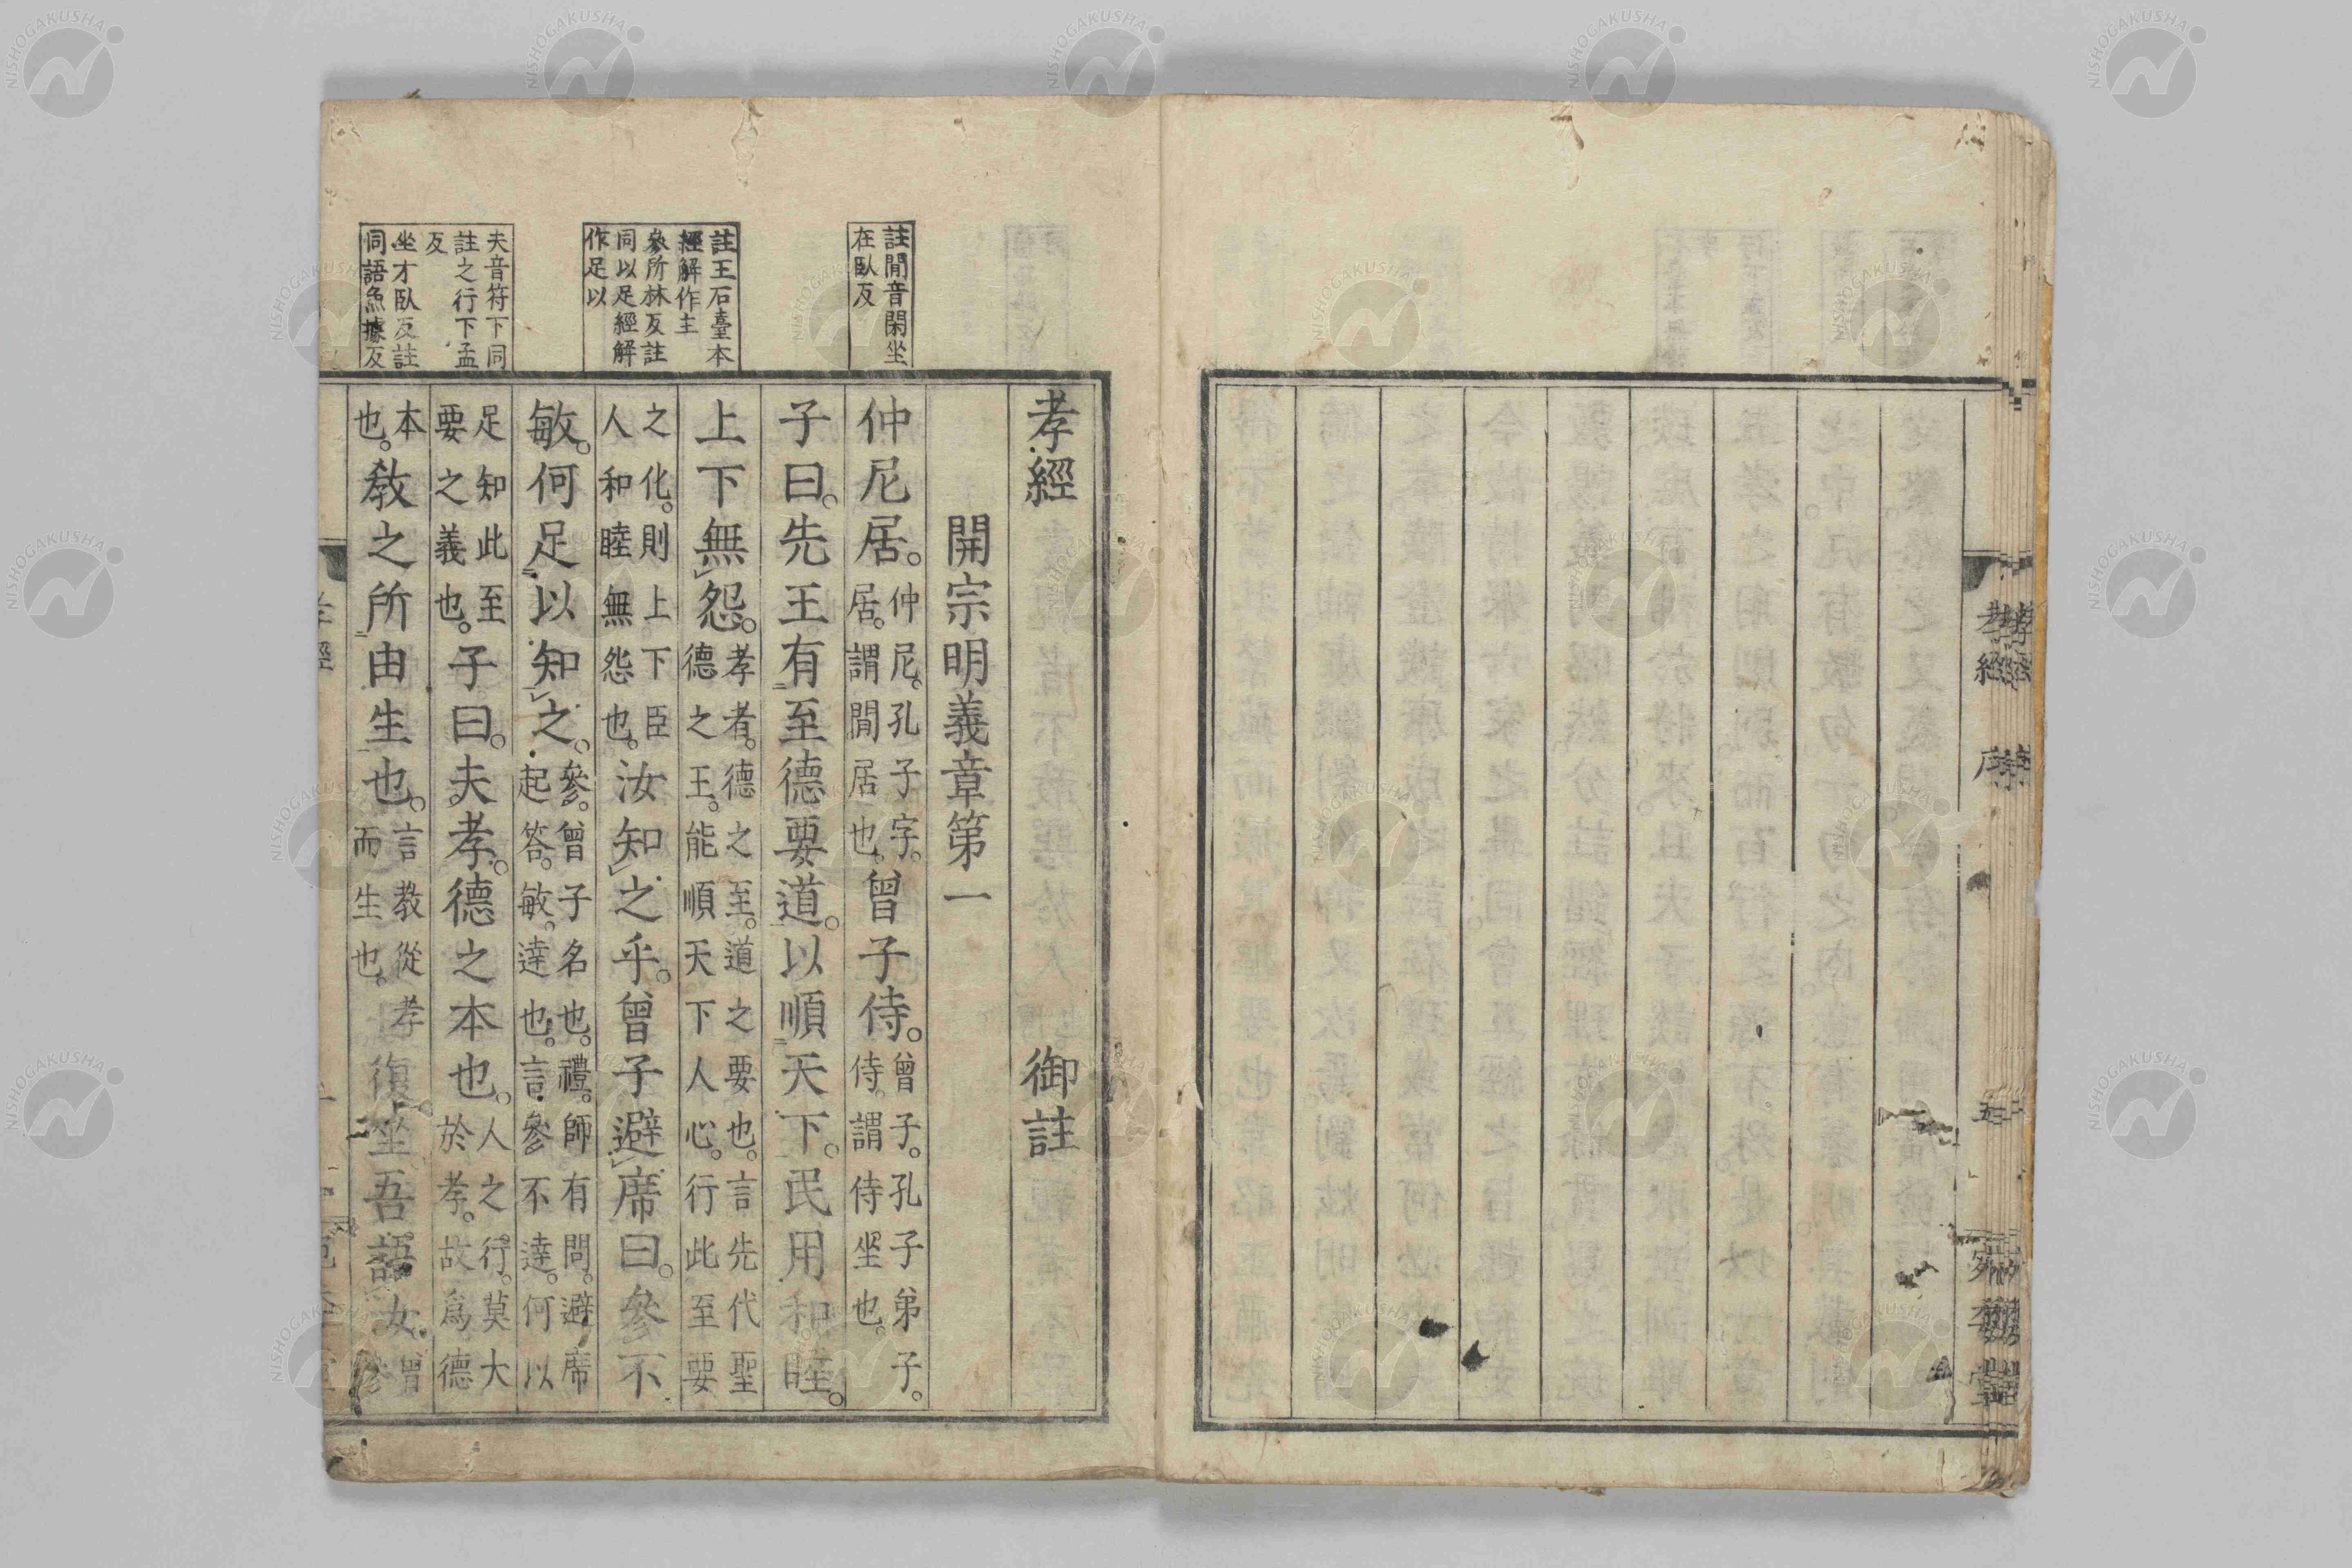 孝經　御註
開宗明義章第一
仲尼居。仲尼。孔子字。居。謂閒居也。曾子侍。曾子。孔子弟子。侍。謂侍坐也。
子曰。先王有至德要道。以順天下。民用和睦。
上下無怨。孝者。德之至。道之要也。言先代聖德之王。能順天下人心。行此至要
之化。則上下臣人和睦無怨也。汝知之乎。曾子避席曰。參不
敏。何足以知之。參。曾子名也。禮。師有問。避席起答。敏。達也。言參不達。何以
足知此至要之義也。子曰。夫孝。德之本也。人之行。莫大於孝。故爲德
本也。教之所由生也。言教從孝而生也。復坐吾語女。曾參
註閒音閑坐
在臥反
註王石臺本
經解作主
參所林反註
同以足經解
作足以
夫音符下同
註之行下孟
反
坐才臥反註
同語魚據反
孝經
序
五
NISHOGAKUSHA